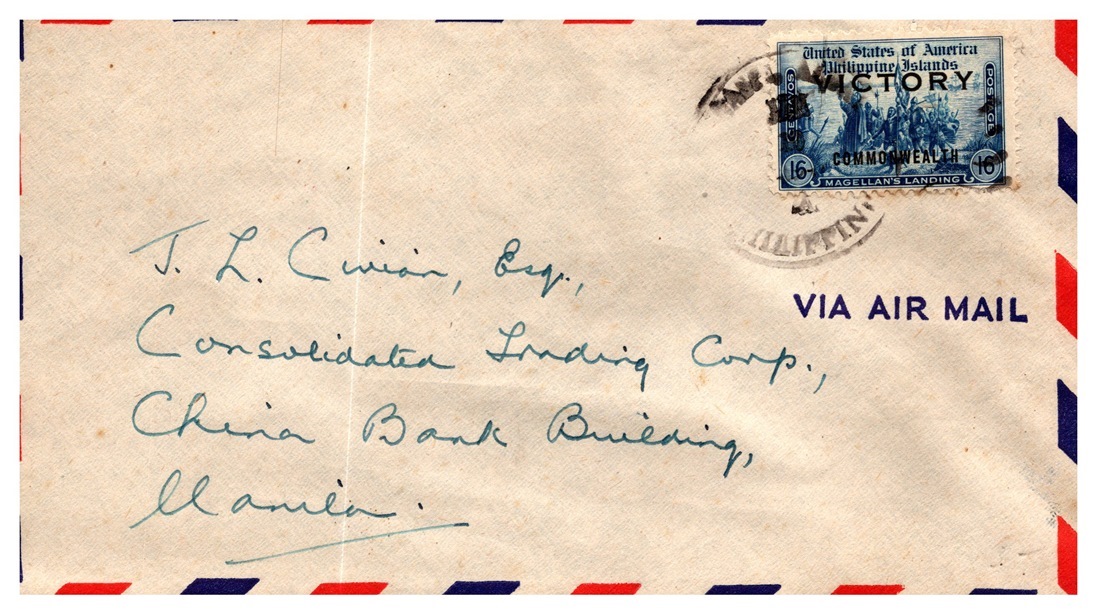 United States of America
Philippine Islands
VICTORY
CENTAVOS
POSTAGE
COMMONWEALTH
16 16
MAGELLAN'S LANDING
VIA AIR MAIL
J. L. Civian, Esq.,
Consolidated Trading Corp.,
China Bank Building,
Manila.